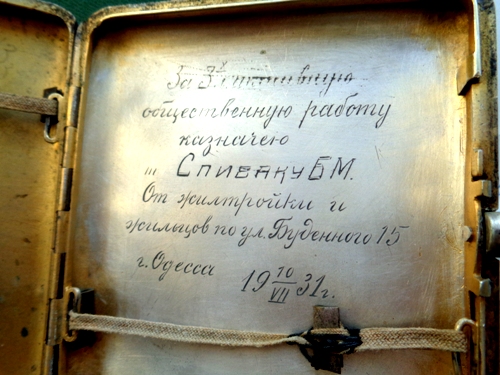 За 3х активную
общественную работу
казначею
„ СПИВАКУ Б М.
От жилтройки и
жильцов по ул. Буденного 15
г. Одесса 19 10/VII 31 г.